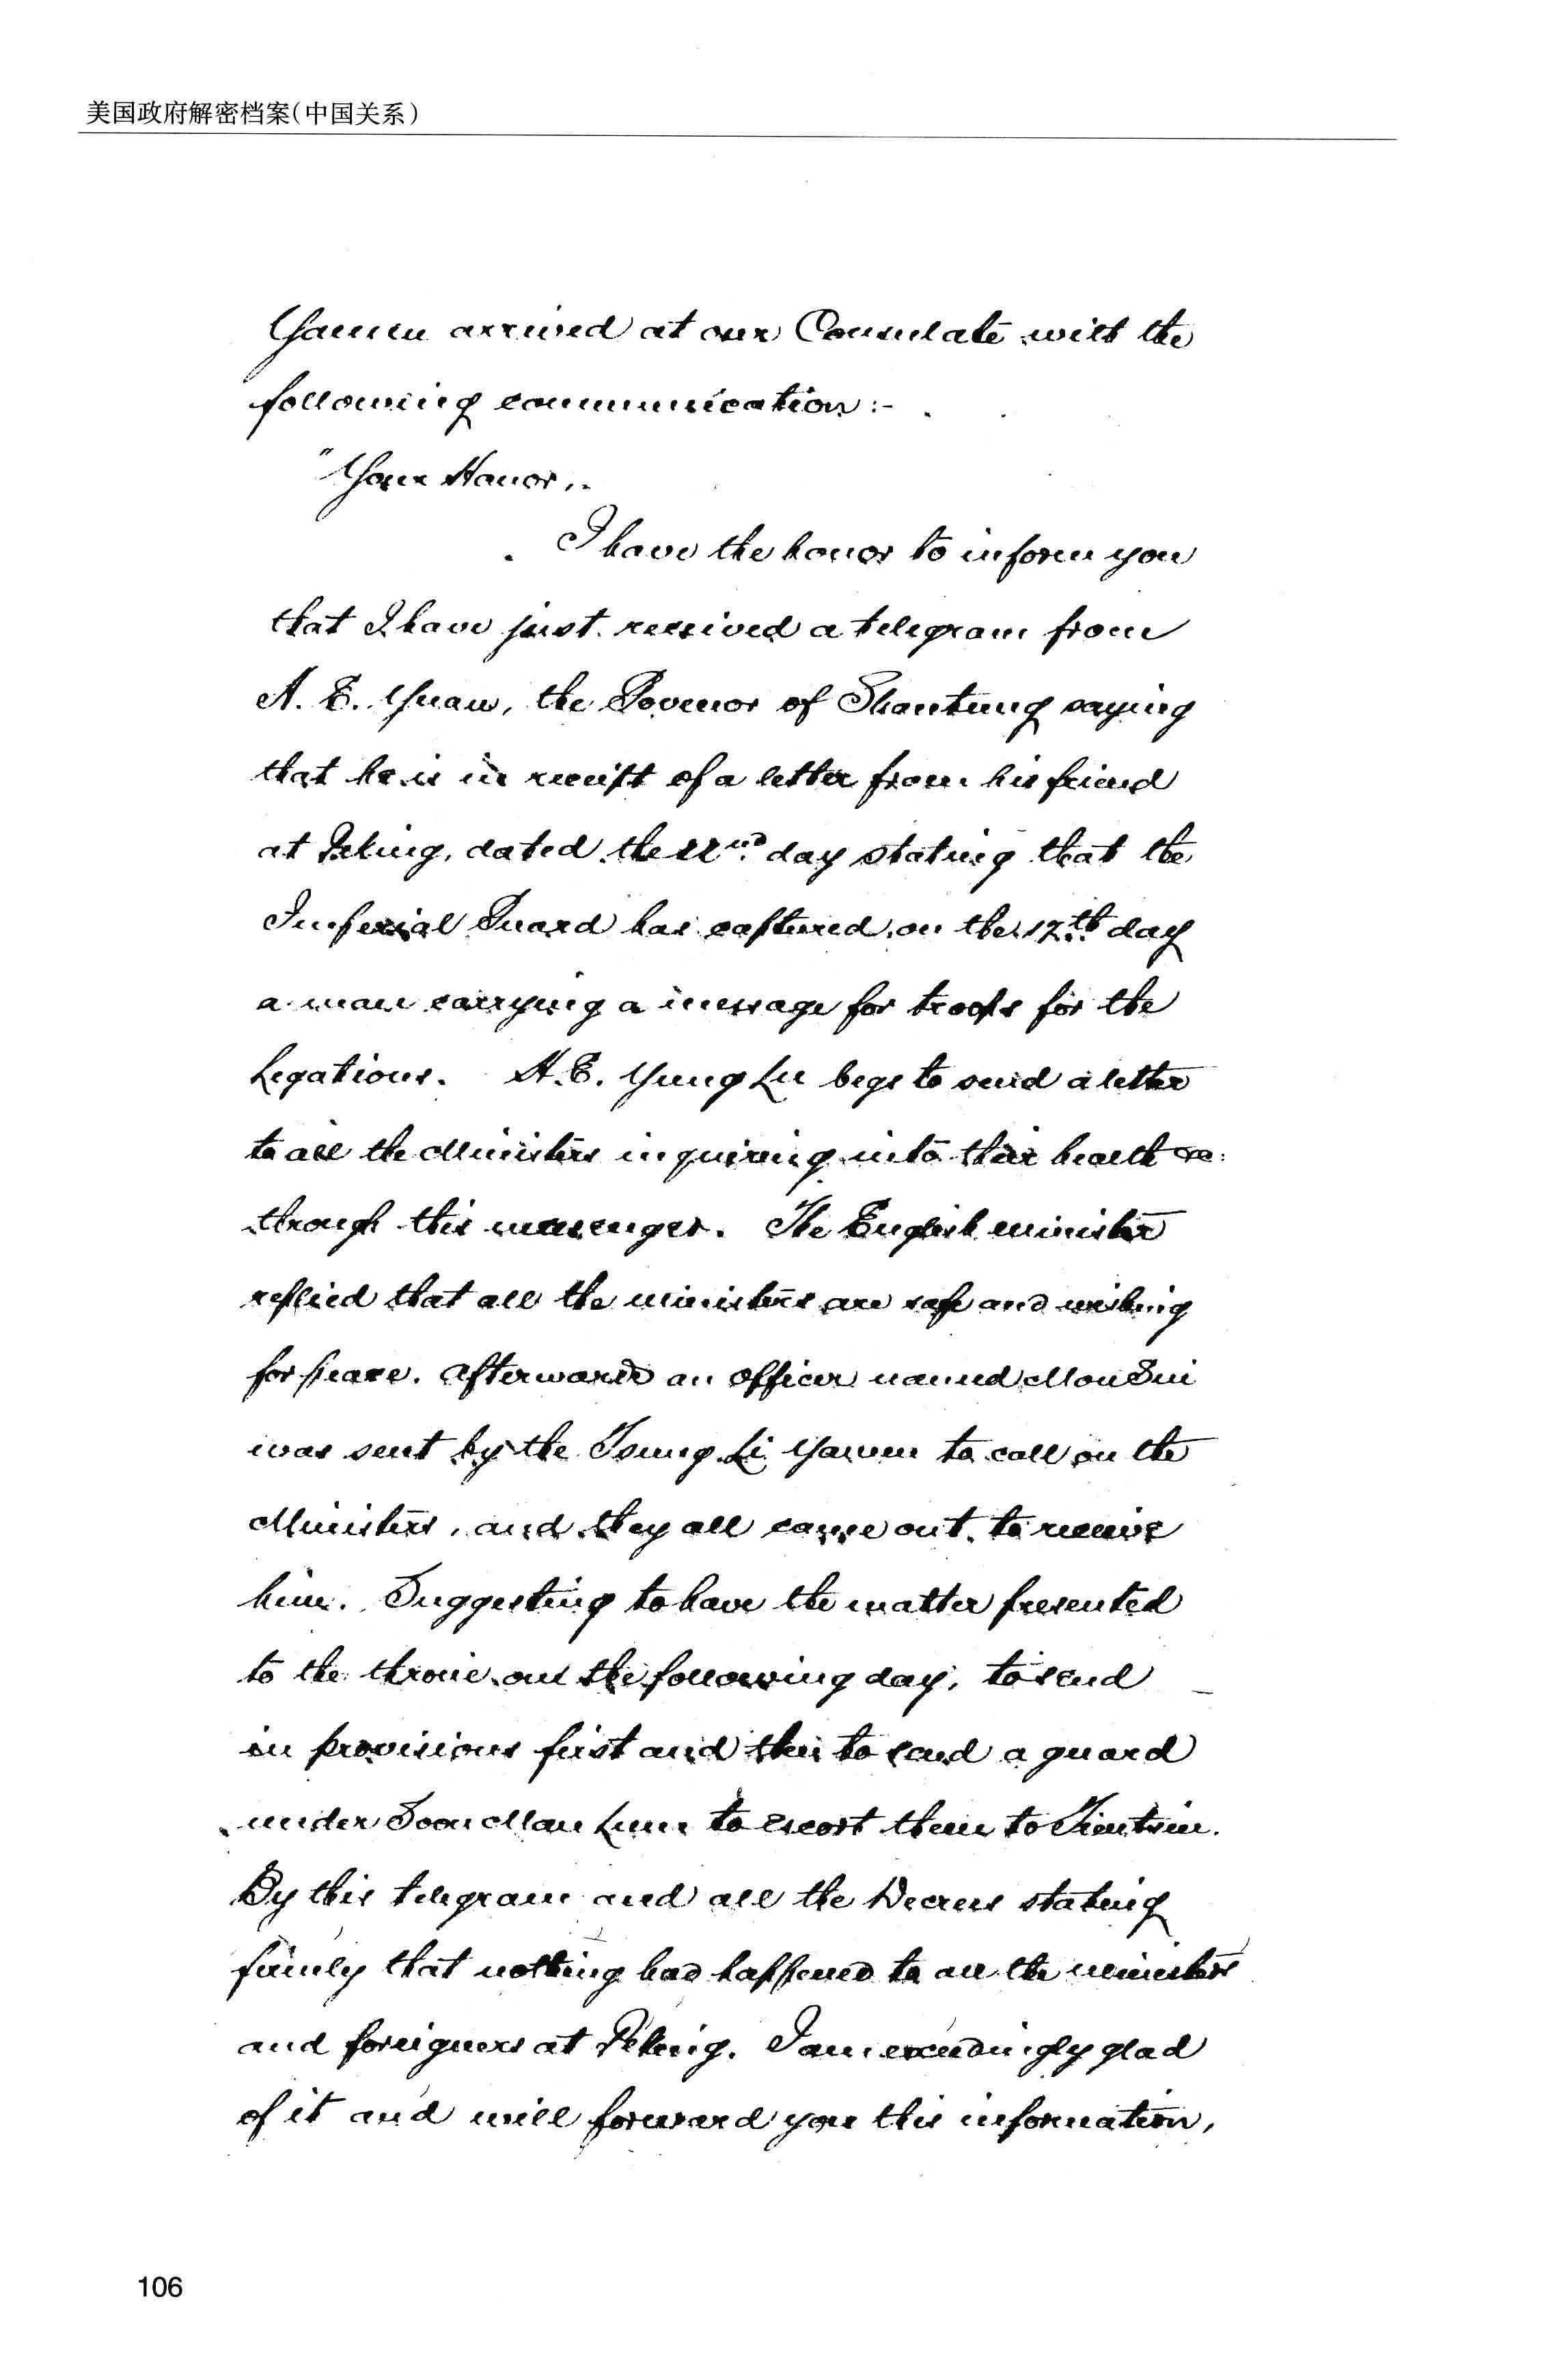 美国政府解密档案(中国关系)
Yamen arrived at our Consulate with the
following communication:-
"Your Honor,.
I have the honor to inform you
that I have just received a telegram from
H. E. Yuan, the Govenor of Shantung saying
that he is in receipt of a letter from his friend
at Peking, dated the 22nd day stating that the
Imperial Guard has captured on the 17th day
a man carrying a message for troops for the
Legations. H. E. Yung Lu begs to send a letter
to all the Ministers inquiring into their health &c:
through this messenger. The English minister
replied that all the ministers are safe and wishing
for peace. Afterwards an officer named Mon Sui
was sent by the Tsung Li Yamen to call on the
Ministers, and they all came out to receive
him. Suggesting to have the matter presented
to the throne on the following day, to send
in provisions first and then to send a guard
under Soon Man Lum to escort them to Tientsin.
By this telegram and all the Decrees stating
fainly that nothing had happened to all the ministers
and foreigners at Peking. I am exceedingly glad
of it and will forward you this information,
106